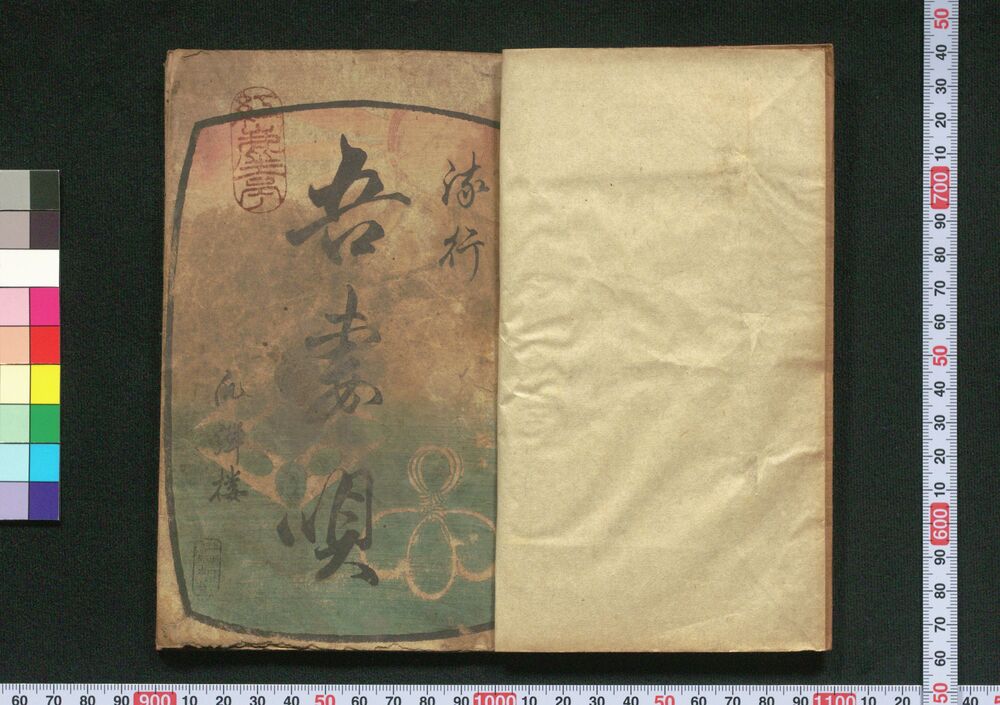 流行
吾妻唄
爪弾楼
50 40 30 20 10 700 90 80 70 60 50 40 30 20 10 600 90 80 70 60 50
60 70 80 90 900 10 20 30 40 50 60 70 80 90 1000 10 20 30 40 50 60 70 80 90 1100 10 20 40